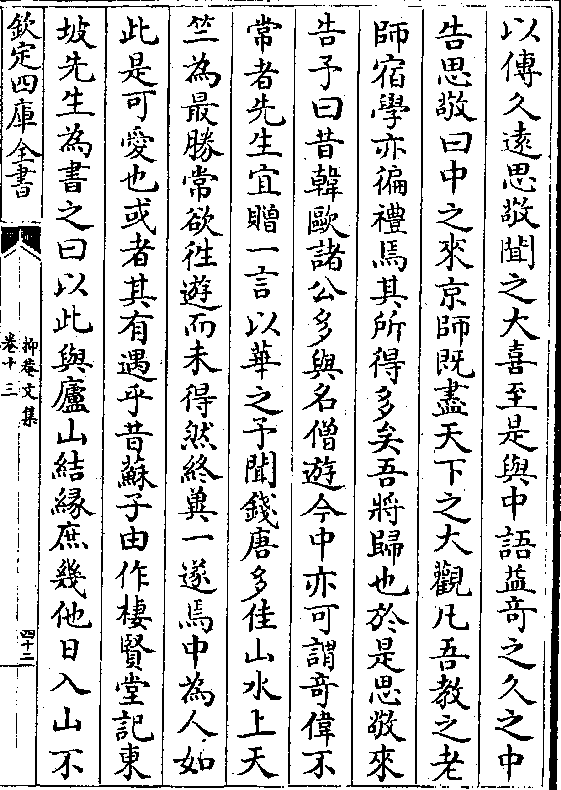 以傳久遠思敬聞之大喜至是與中語益竒之久之中
告思敬曰中之來京師既盡天下之大觀凡吾教之老
師宿學亦徧禮焉其所得多矣吾將歸也於是思敬來
告予曰昔韓歐諸公多與名僧遊今中亦可謂竒偉不
常者先生宜贈一言以華之予聞錢唐多佳山水上天
竺為最勝常欲徃遊而未得然終兾一遂焉中為人如
此是可愛也或者其有遇乎昔蘇子由作棲賢堂記東
坡先生為書之曰以此與廬山結緣庶幾他日入山不
欽定四庫全書
抑菴文集
卷十三
四十二